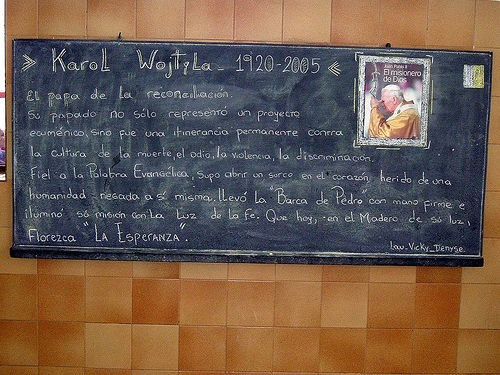 » Karol Wojtyla _ 1920-2005 «
Juan Pablo II
El misionero
de Dios
El papa de la reconciliación.
Su papado no sólo representó un proyecto
ecuménico, sino fue una itinerancia permanente contra
la cultura de la muerte, el odio, la violencia, la discriminación.
Fiel a la Palabra Evangélica, supo abrir un surco en el corazón herido de una
humanidad negada a sí misma. LLevó la "Barca de Pedro" con mano firme e
iluminó su misión con la Luz de la Fe. Que hoy, en el Madero de su luz,
Florezca "LA ESPERANZA".
Lau_Vicky_Denyse.